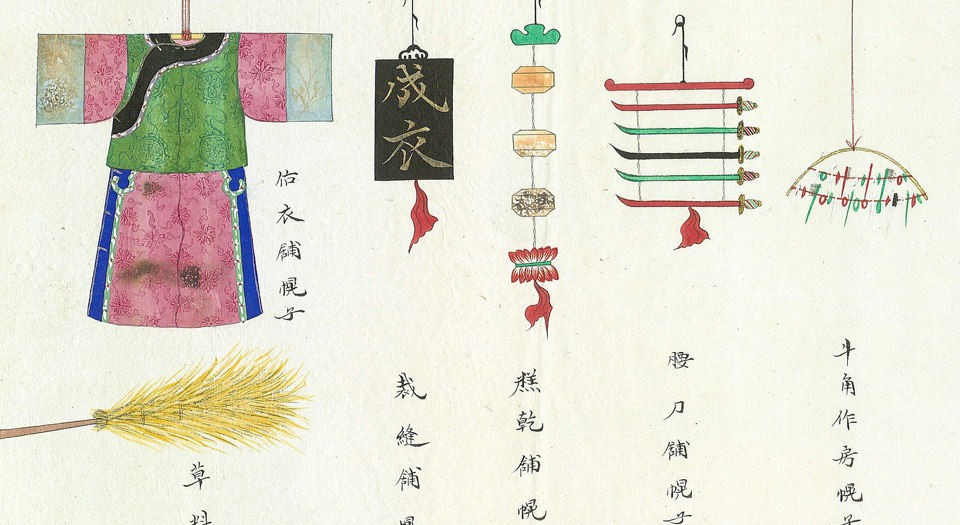 牛角作房幌子
腰刀舖幌子
糕乾舖幌
成衣
裁縫舖
估衣舖幌子
草料